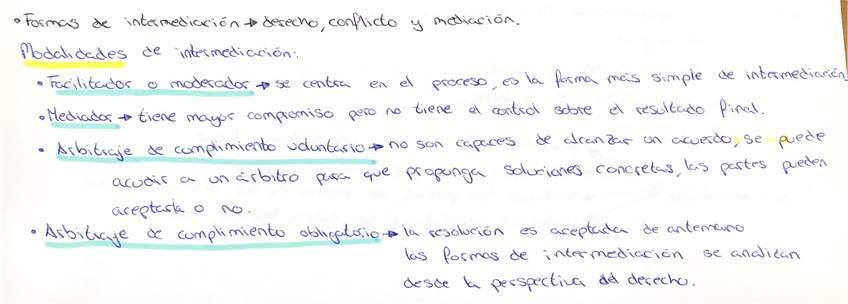 • Formas de intermediación → derecho, conflicto y mediación.
Modalidades de intermediación:
• Facilitador o moderador → se centra en el proceso, es la forma más simple de intermediación
• Mediador → tiene mayor compromiso pero no tiene el control sobre el resultado final.
• Arbitraje de cumplimiento voluntario → no son capaces de alcanzar un acuerdo, se puede
acudir a un árbitro para que proponga soluciones concretas, las partes pueden
aceptarla o no.
• Arbitraje de cumplimiento obligatorio → la resolución es aceptada de antemano
las formas de intermediación se analizan
desde la perspectiva del derecho.